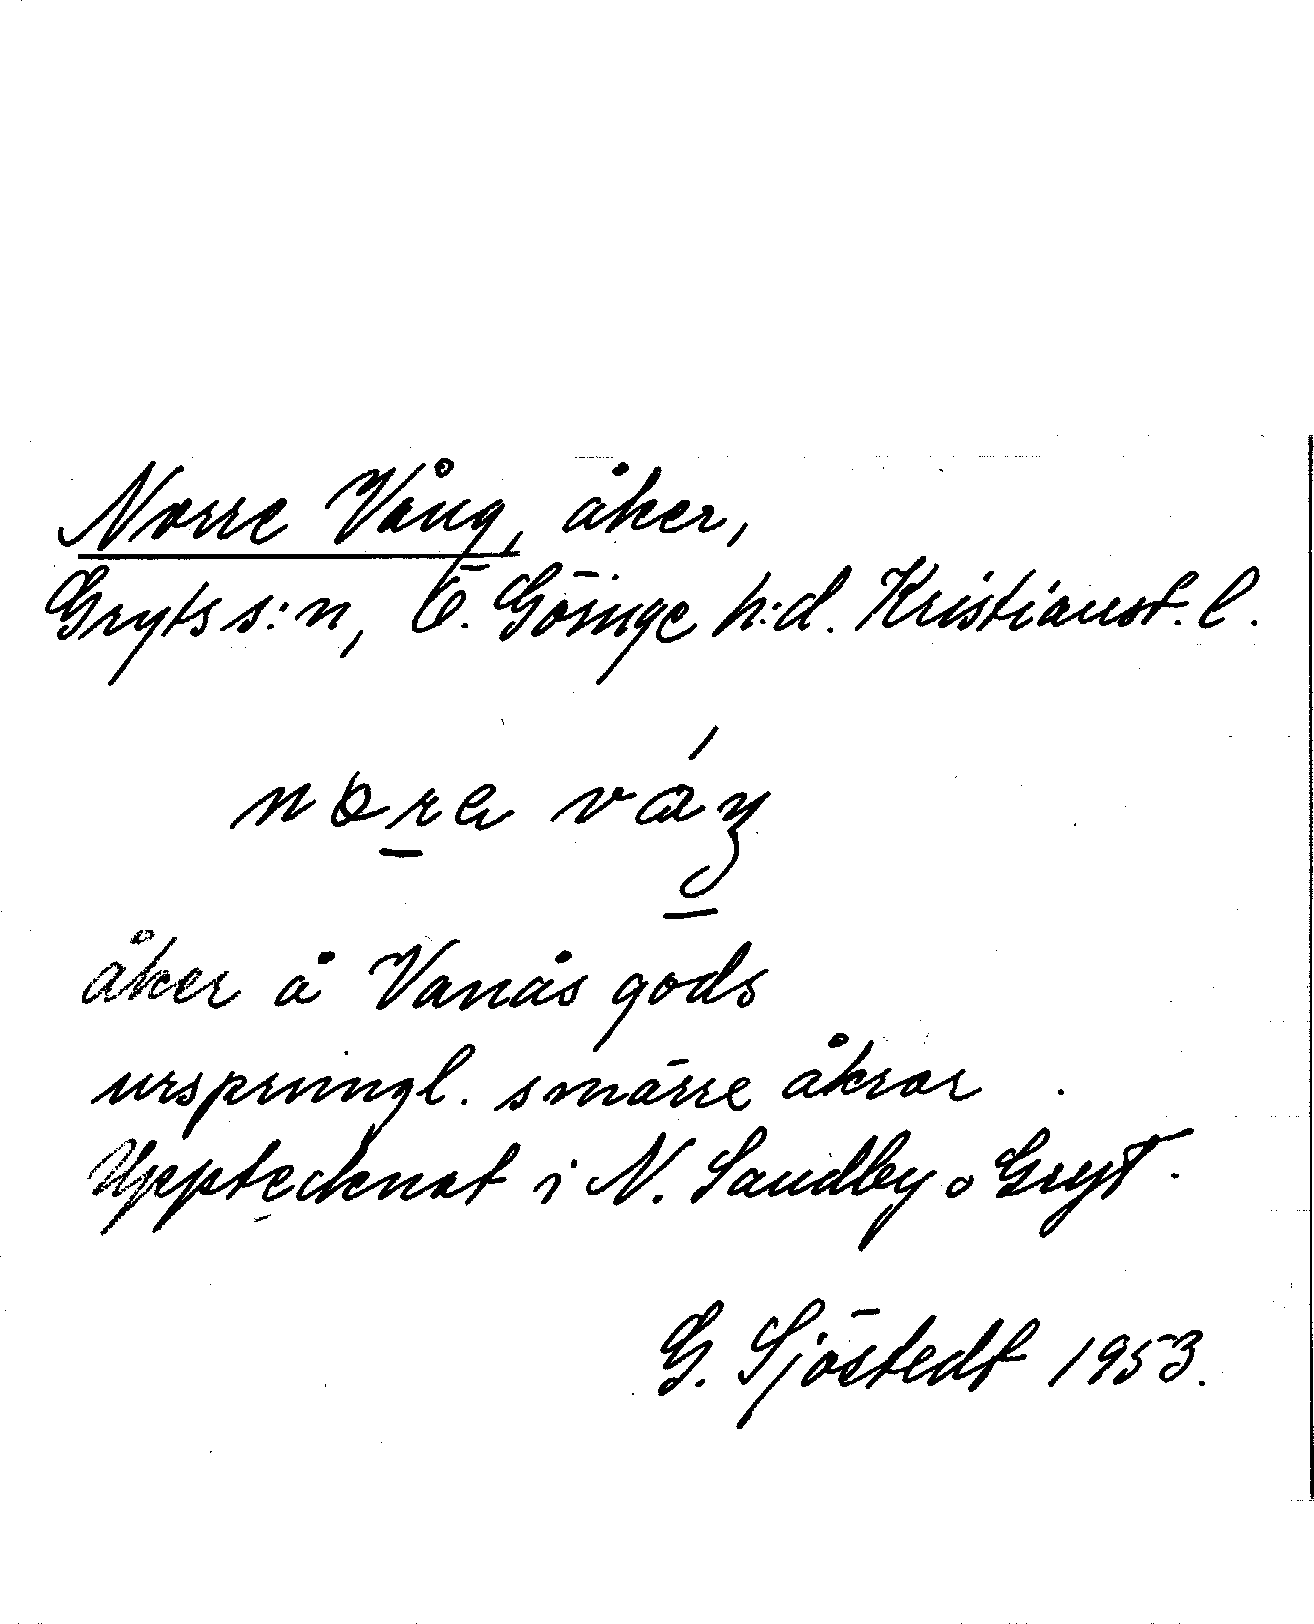 Norre Vång, åker,
Gryts s:n, Ö. Göinge h:d. Kristianst. l.
åker å Vanås gods
ursprungl. smärre åkrar
Upptecknat i N. Sandby o Gryt.
G. Sjöstedt 1953.